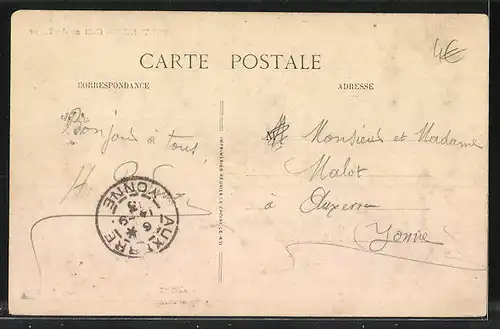 4€
CARTE POSTALE
CORRESPONDANCE
ADRESSE
Bonjour à tous,
Monsieur et Madame
Malot
à Auxerre
Yonne
AUXERRE
YONNE